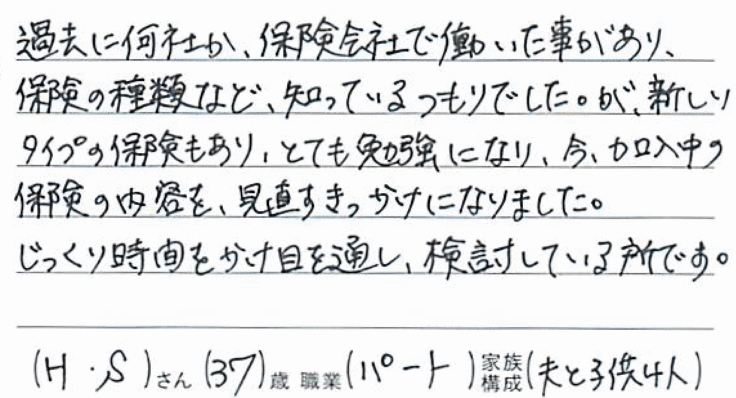 過去に何社か、保険会社で働いた事があり、
保険の種類など、知っているつもりでした。が、新しい
タイプの保険もあり、とても勉強になり、今、加入中の
保険の内容を、見直すきっかけになりました。
じっくり時間をかけ目を通し、検討している所です。
(H・S)さん(37)歳 職業(パート)家族構成(夫と子供4人)